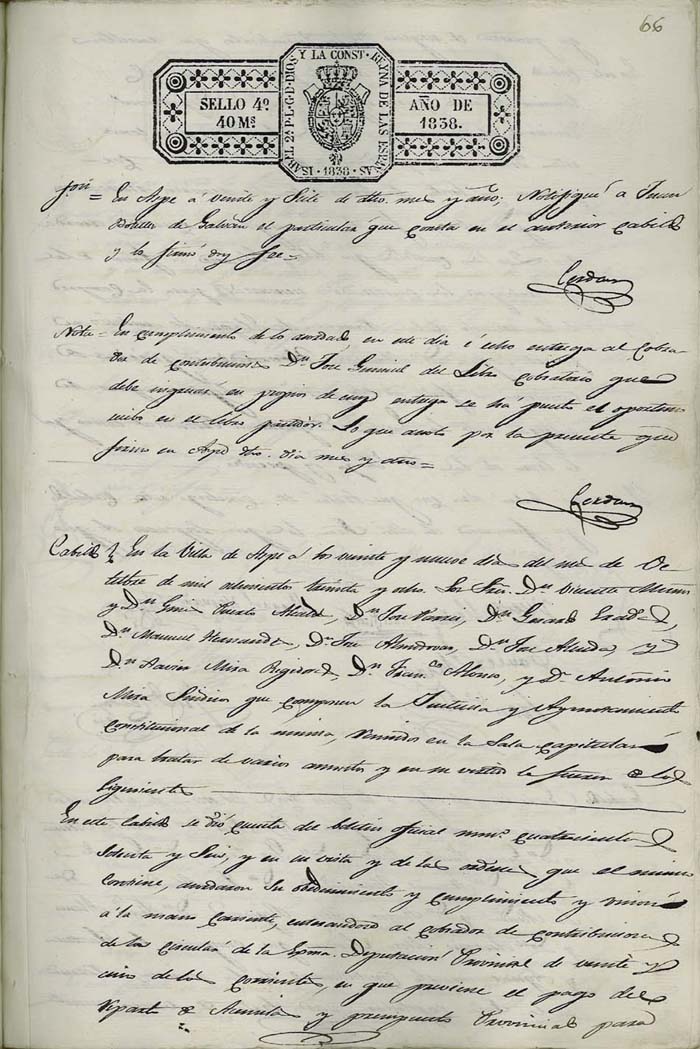 66
ISABEL 2ª P. L. G. D. DIOS Y LA CONST. REYNA DE LAS ESPAÑAS
SELLO 4º
40 Ms
AÑO DE
1838.
1838
En Aspe á veinte y Siete de dho. mes y año; Notifiqué a Juan
Botella de Galvan el particular que consta en el anterior Cabildo
y lo firmó doy fee=
Cerdan
Nota= En cumplimiento de lo acordado en este dia é echo entrega al Cobra
dor de contribuciones Dn. Jose del Libro Cobratorio que
debe ingresar en propios de cuya entrega se há puesto el oportuno
recibo en el libro. Lo que anoto por la presente que
firmo en Aspe dho. dia mes y año=
Cerdan
Cabildo En la Villa de Aspe á los veinte y nueve dias del mes de Oc
tubre de mil ochocientos treinta y ocho. Los Sres. Dn. Vicente
y Dn. Gines Puerto Alcaldes, Dn. Jose, Dn. Gerardo,
Dn. Manuel Hernandez, Dn. Jose Almodovar, Dn. Jose y
Dn. Xavier Mira Regidores, Dn. Franco. Alonso, y Dn. Antonio
Mira Sindicos que componen la Justicia y Ayuntamiento
Constitucional de la misma, reunidos en la Sala Capitular
para tratar de varios asuntos y en su virtud lo fueron de los
Siguientes
En este Cabildo se dió cuenta del boletin oficial numo. cuatrocientos
Setenta y Seis, y en su vista y de las ordenes que el mismo
Contiene, acordaron su obedecimiento y cumplimiento y
á la mano corriente, enterandose al cobrador de contribuciones
de la circular de la Exma. Deputacion Provincial de veinte y
cinco de los corrientes, en que previene el pago del
Reparto de y presupuesto Provincial para